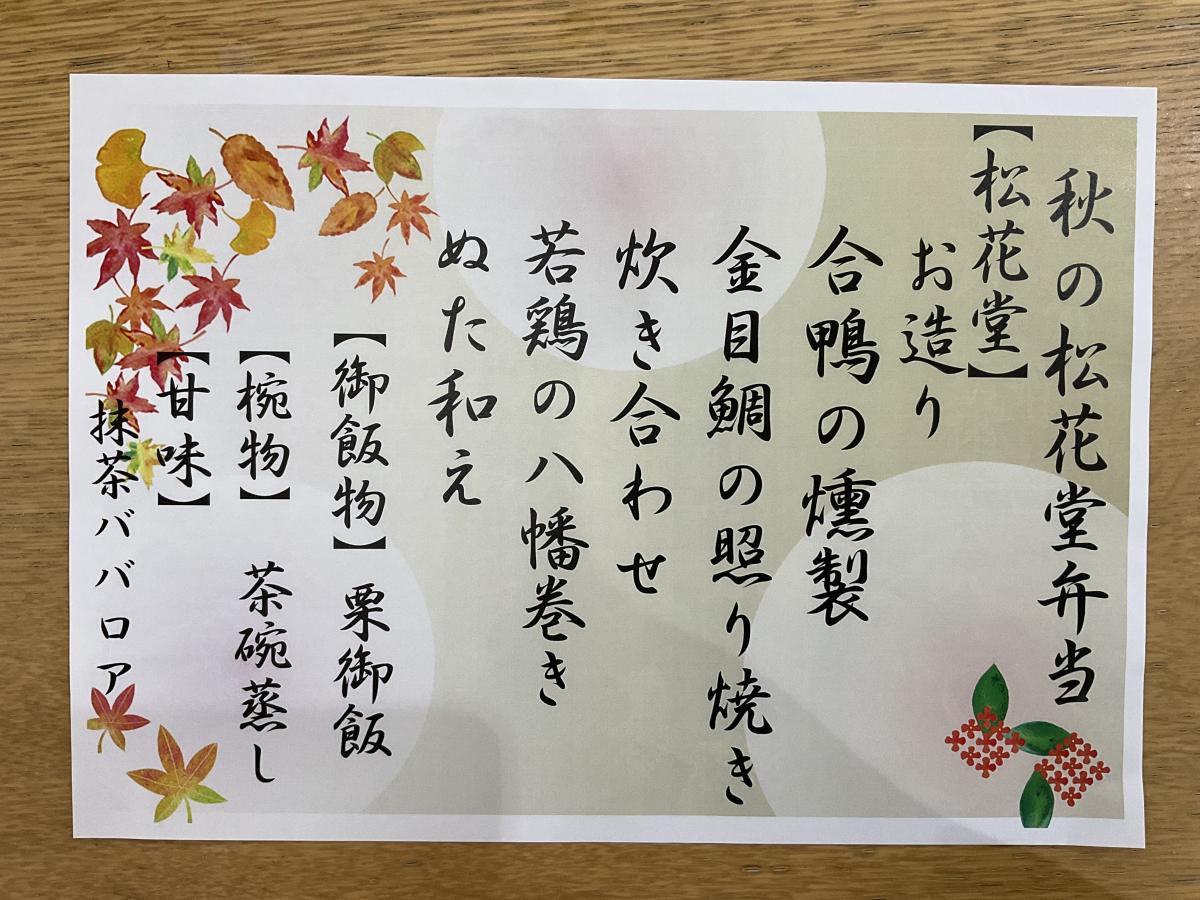 秋の松花堂弁当
【松花堂】
お造り
合鴨の燻製
金目鯛の照り焼き
炊き合わせ
若鶏の八幡巻き
ぬた和え
【御飯物】 栗御飯
【椀物】 茶碗蒸し
【甘味】
抹茶ババロア